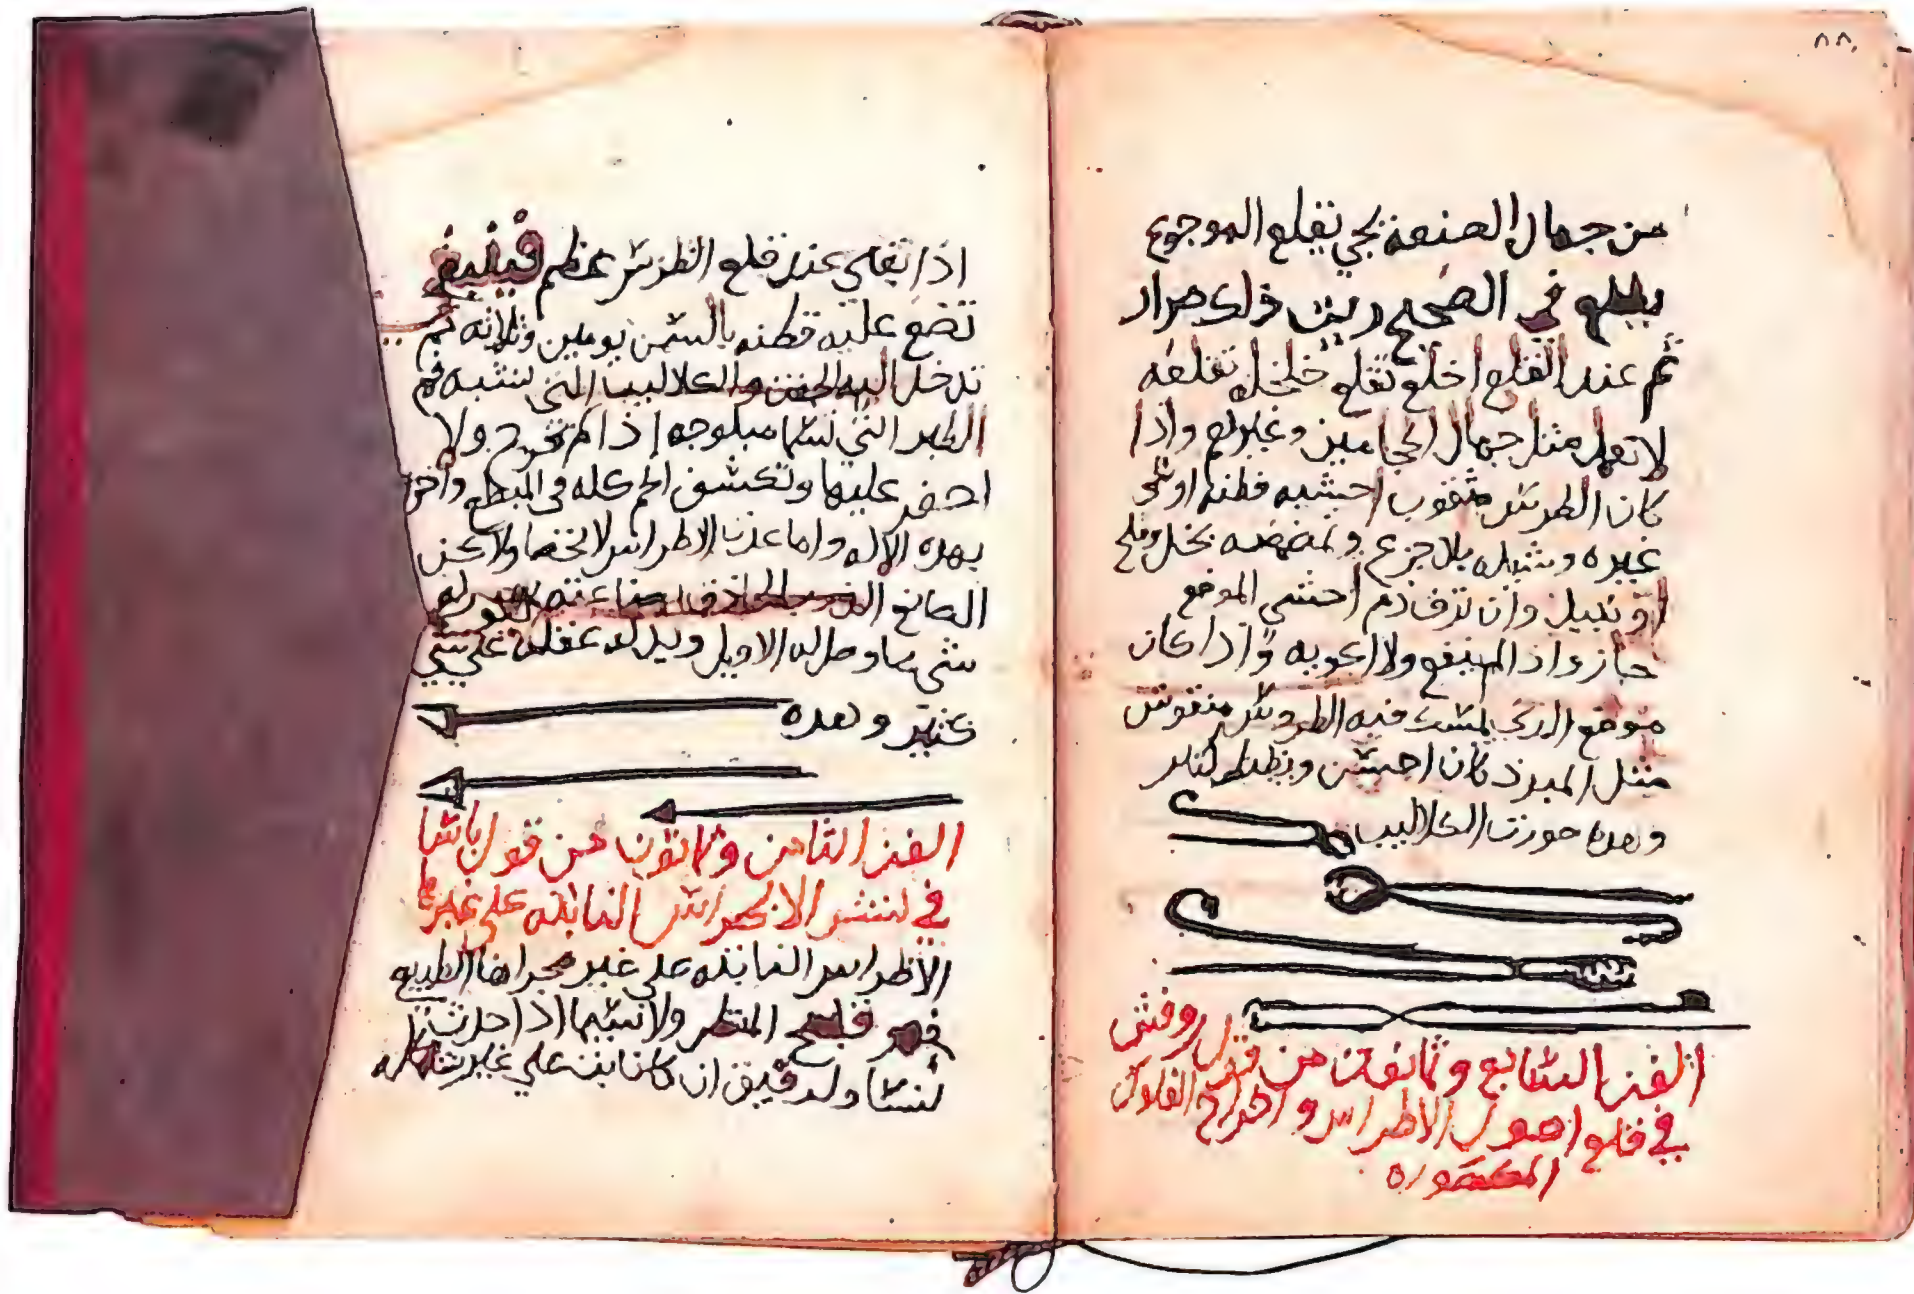 ٨٨
من جهال الصنعة يجي يقلع الموجوع
يطلع في الصحيح ريت ذلك مرار
ثم عند القلع اخلع تقلع خلخل تقلعه
لا تعمل مثل جهال الحجامين وغيرهم واذا
كان الطرس مثقوب احشيه قطنه او شي
غيره وشيله بلا جزع وتمضمضه بخل وملح
او نبيذ وان نزف دم احشي الموضع
جاز واذا لم ينفع ولا اكويه واذا كان
موضع الذي يمسك فيه الطروس منقوش
مثل المبرد كان احسن ويظبط
وهده صورت الكلاليب
الفن السابع وثمانون من قول روفس
في قلع اصول الاطراس واخراج الفكوك
المكسوره
اذا تبقى عند قلع الطرس عظم فينبغي
تضع عليه قطنه بالسمن يومين وثلاثه ثم
تدخل اليه الجفت والكلاليب التي تشبه فم
الطير التي تسما مبلوجه إذا لم تخرج ولا
احفر عليها وتكشف اللحم كله في المبطع
بهده الآله واما عدت الاطراس لا تحصا ولاكن
الصانع الحاذق
شي مما وصل له الاويل ويدله عقله على شي
كثير وهده
الفن الثامن وثمانون من قول باشا
في نشر الاطراس النابته على غيرها
الاطراس النابته على غير مجراها الطبيع
فهو قبيح المنظر ولا سيما اذا حدث
لنسا ولد قيق ان كان نابت على غير شكله